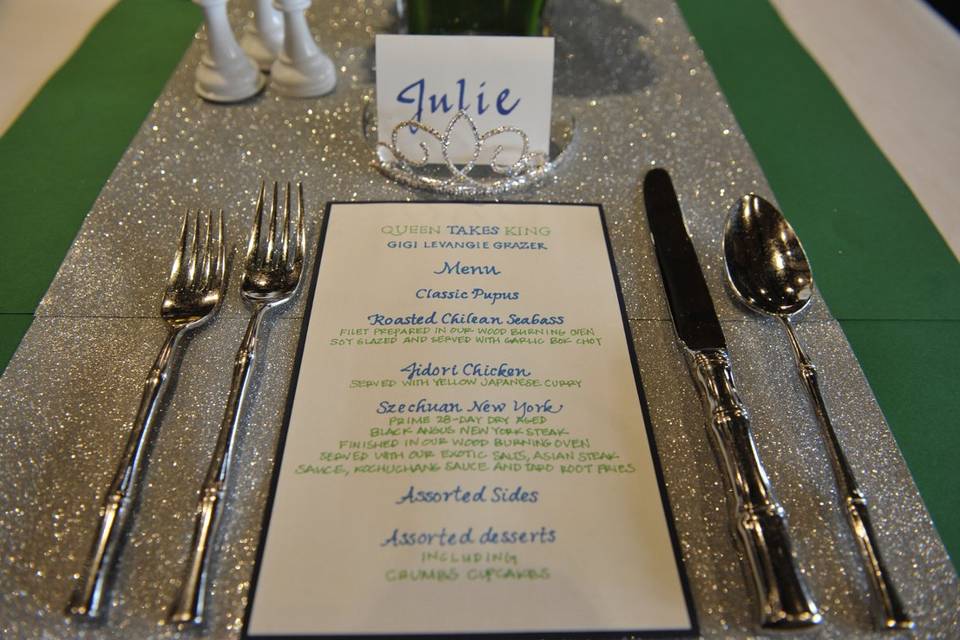 Julie
QUEEN TAKES KING
GIGI LEVANGIE GRAZER
Menu
Classic Pupus
Roasted Chilean Seabass
FILET PREPARED IN OUR WOOD BURNING OVEN
SOY GLAZED AND SERVED WITH GARLIC BOK CHOY
Jidori Chicken
SERVED WITH YELLOW JAPANESE CURRY
Szechuan New York
PRIME 28-DAY DRY AGED
BLACK ANGUS NEW YORK STEAK
FINISHED IN OUR WOOD BURNING OVEN
SERVED WITH OUR EXOTIC SALTS, ASIAN STEAK
SAUCE, KOCHUCHANG SAUCE AND TARO ROOT FRIES
Assorted Sides
Assorted desserts
INCLUDING
CRUMBS CUPCAKES